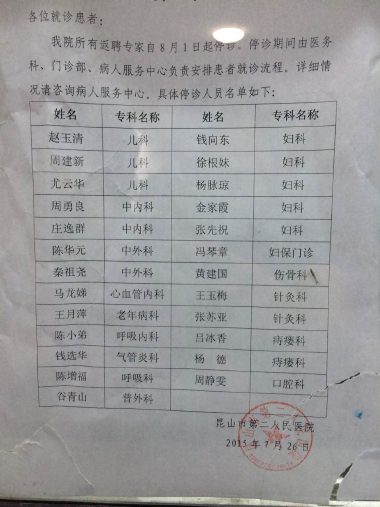 各位就诊患者：
我院所有返聘专家自8月1日起停诊，停诊期间由医务
科、门诊部、病人服务中心负责安排患者就诊流程。详细情
况请咨询病人服务中心。具体停诊人员名单如下：
姓名 专科名称 姓名 专科名称
赵玉清 儿科 钱向东 妇科
周建新 儿科 徐根妹 妇科
尤云华 儿科 杨脉琼 妇科
周勇良 中内科 金家霞 妇科
庄逸群 中内科 张先祝 妇科
陈华元 中外科 冯琴章 妇保门诊
秦祖尧 中外科 黄建国 伤骨科
马龙娣 心血管内科 王玉梅 针灸科
王月萍 老年病科 张苏亚 针灸科
陈小弟 呼吸内科 吕冰香 痔瘘科
钱选华 气管炎科 杨德 痔瘘科
陈增福 呼吸科 周静雯 口腔科
谷青山 普外科
昆山市第二人民医院
2015年7月26日